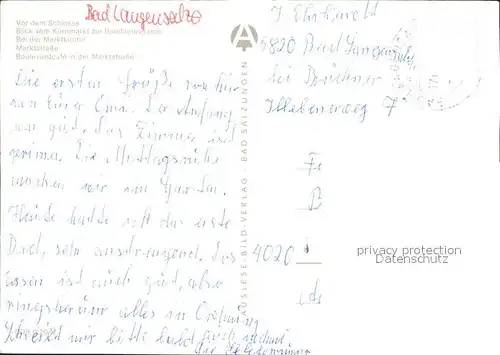 Bad Langensalza
Vor dem Schlosse
Blick vom Kornmarkt zur Bonifatiuskirche
Bei der Marktkirche
Marktstraße
Boulevardcafé in der Marktstraße
AUSLESE-BILD-VERLAG - BAD SALZUNGEN
I. Ehrhardt
5820 Bad Langensalza
bei Brückner
Illebener Weg 7
Die ersten Grüße von hier
von Eurer Oma. Der Anfang
war gut, das Zimmer ist
geräumig. Die Mittagsruhe
machen wir im Garten.
Heute hatte ich das erste
Bad, sehr anstrengend. Das
Essen ist auch gut, also
ringsherum alles in Ordnung
Schreibt mir bitte bald auch nochmal.
die
Fa
4020
privacy protection
Datenschutz